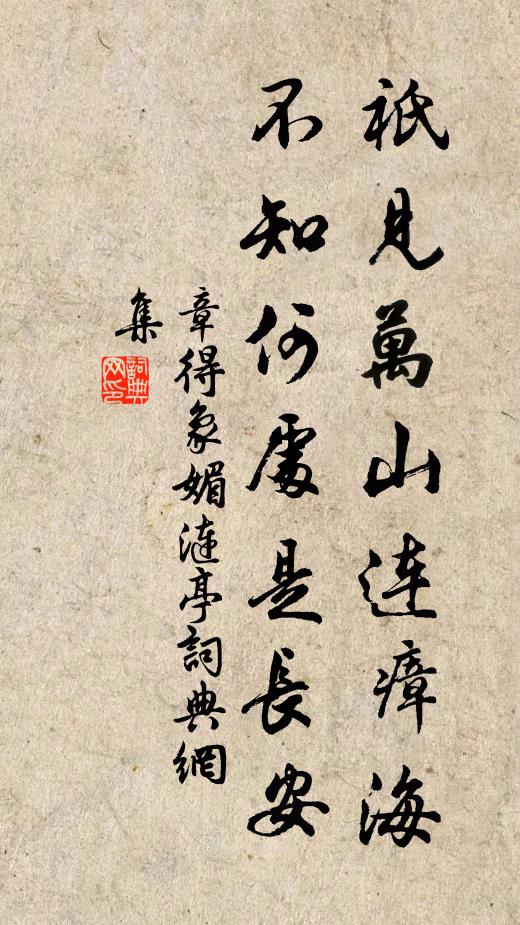 祇見萬山連瘴海
不知何處是長安
章得象媚漣亭詞典網
集
詞典
网印